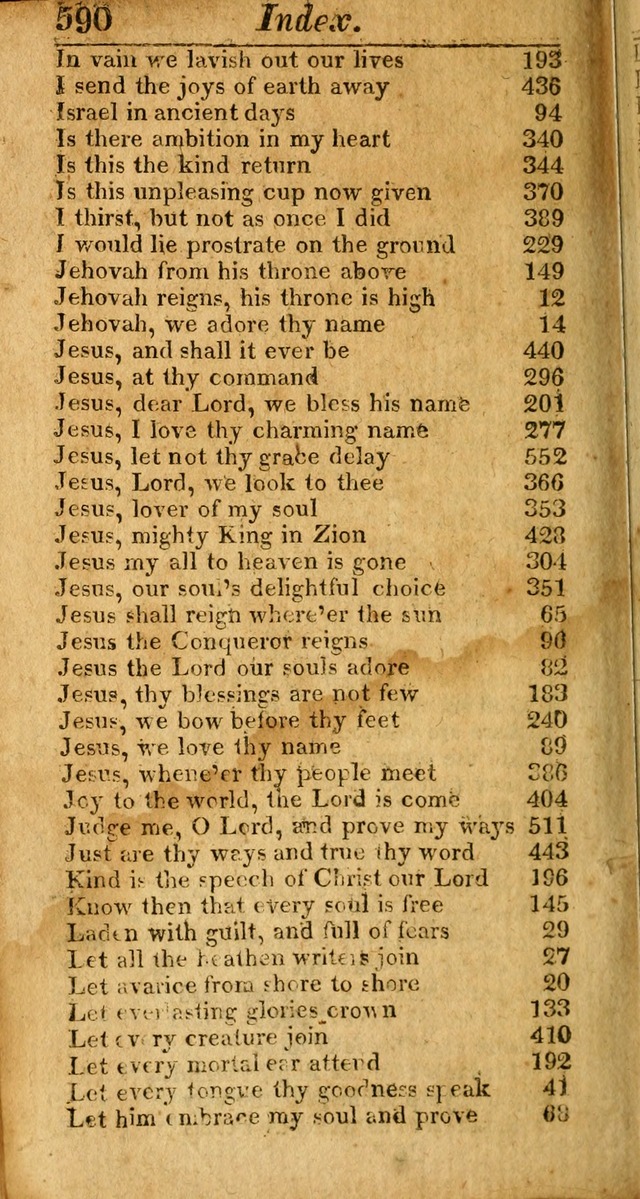 590 Index.
In vain we lavish out our lives 193
I send the joys of earth away 436
Israel in ancient days 94
Is there ambition in my heart 340
Is this the kind return 344
Is this unpleasing cup now given 370
I thirst, but not as once I did 389
I would lie prostrate on the ground 229
Jehovah from his throne above 149
Jehovah reigns, his throne is high 12
Jehovah, we adore thy name 14
Jesus, and shall it ever be 440
Jesus, at thy command 296
Jesus, dear Lord, we bless his name 201
Jesus, I love thy charming name 277
Jesus, let not thy grace delay 552
Jesus, Lord, we look to thee 366
Jesus, lover of my soul 353
Jesus, mighty King in Zion 423
Jesus my all to heaven is gone 304
Jesus, our soul's delightful choice 351
Jesus shall reign where'er the sun 65
Jesus the Conqueror reigns 90
Jesus the Lord our souls adore 82
Jesus, thy blessings are not few 183
Jesus, we bow before thy feet 240
Jesus, we love thy name 89
Jesus, whene'er thy people meet 386
Joy to the world, the Lord is come 404
Judge me, O Lord, and prove my ways 511
Just are thy ways and true thy word 443
Kind is the speech of Christ our Lord 196
Know then that every soul is free 145
Laden with guilt, and full of fears 29
Let all the heathen writers join 27
Let avarice from shore to shore 20
Let everlasting glories crown 133
Let every creature join 410
Let every mortal ear attend 192
Let every tongue thy goodness speak 41
Let him embrace my soul and prove 68